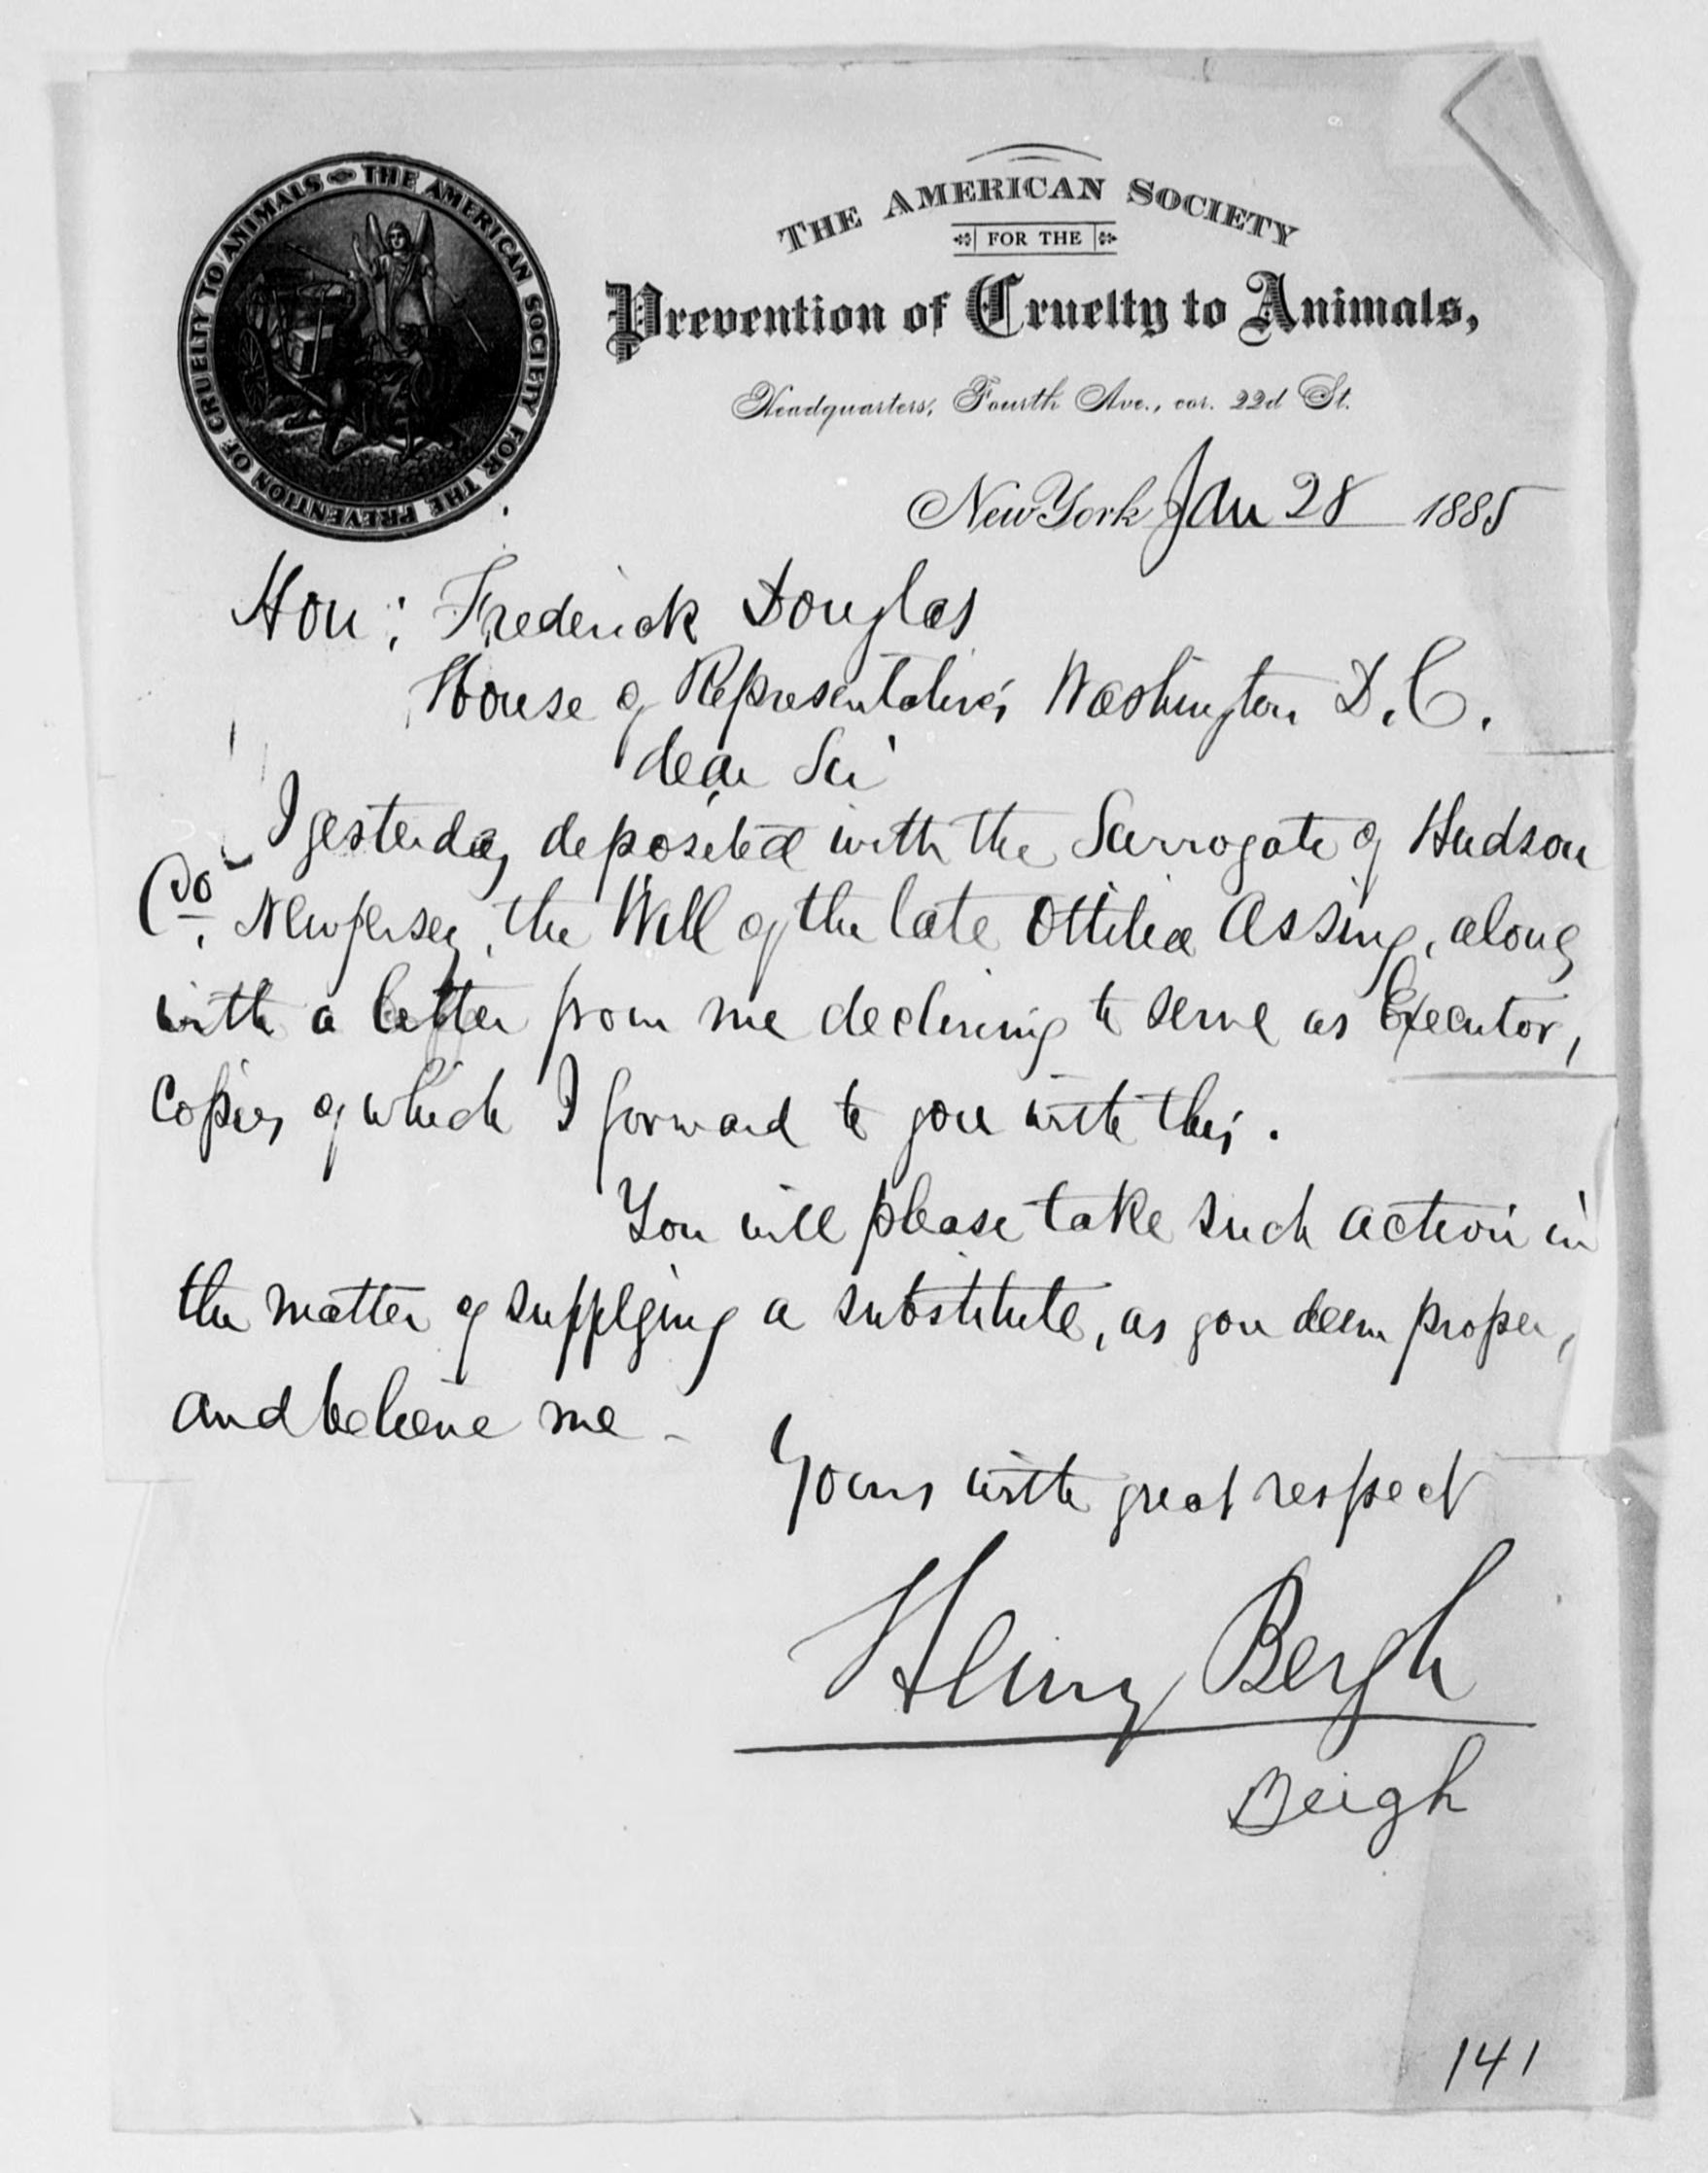 THE AMERICAN SOCIETY FOR THE PREVENTION OF CRUELTY TO ANIMALS
THE AMERICAN SOCIETY
FOR THE
Prevention of Cruelty to Animals,
Headquarters, Fourth Ave., cor. 22d St.
New York Jan 28 1885
Hon: Frederick Douglas
House of Representatives Washington D.C.
dear Sir
I yesterday deposited with the Surrogate of Hudson
Co. New Jersey, the Will of the late Ottilia Assing, along
with a letter from me declining to serve as Executor,
copies of which I forward to you with this.
You will please take such action in
the matter of supplying a substitute, as you deem proper,
and believe me -
Yours with great respect
Henry Bergh
Beigh
141